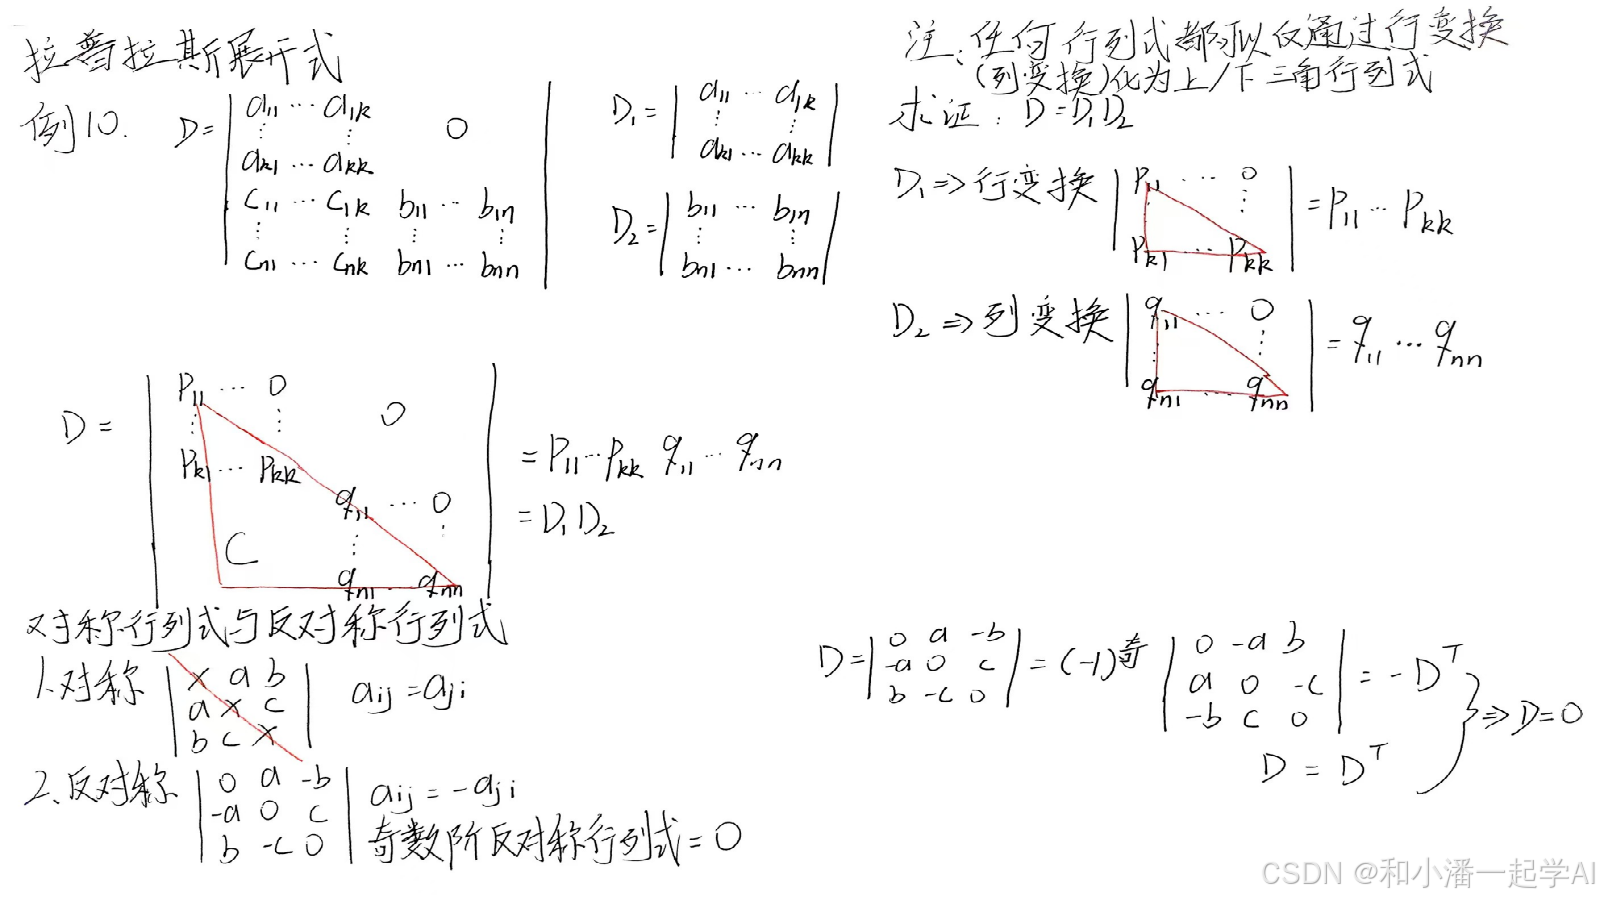 拉普拉斯展开式
例10.
D= | a11 ··· a1k 0 |
ak1 ··· akk
c11 ··· c1k b11 ··· b1n
cn1 ··· cnk bn1 ··· bnn
D1= | a11 ··· a1k |
ak1 ··· akk
D2= | b11 ··· b1n |
bn1 ··· bnn
注:任何行列式都可以仅通过行变换
(列变换)化为上/下三角行列式
求证: D=D1D2
D1⇒行变换 | P11 ··· 0 | = P11 ··· Pkk
Pk1 ··· Pkk
D2⇒列变换 | q11 ··· 0 | = q11 ··· qnn
qn1 ··· qnn
D= | P11 ··· 0 0 |
Pk1 ··· Pkk
q11 ··· 0
C
qn1 ··· qnn
= P11 ··· Pkk q11 ··· qnn
= D1D2
对称行列式与反对称行列式
1.对称 | x a b | aij=aji
a x c
b c x
2.反对称 | 0 a -b | aij=-aji
-a 0 c
b -c 0
奇数阶反对称行列式=0
D= | 0 a -b | =(-1)奇 | 0 -a b | = -D^T
-a 0 c
b -c 0
a 0 -c
-b c 0
D = D^T
⇒D=0
CSDN @和小潘一起学AI